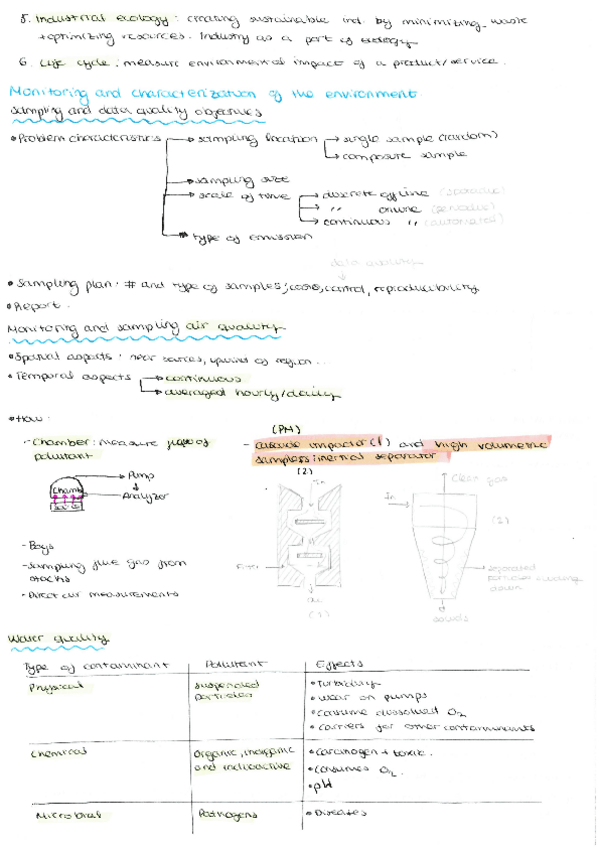 5. Industrial ecology: creating sustainable ind. by minimizing waste
+optimizing resources. Industry as a part of ecology
6. Life cycle: measure environmental impact of a product/service.
Monitoring and characterization of the environment
Sampling and data quality objectives
•Problem characteristics →sampling location →single sample (random)
→composure sample
→sampling size
→scale of time →discrete offline (sporadic)
→ " online (periodic)
→continuous " (automated)
→type of emission
data quality
•Sampling plan: # and type of samples, costs, control, reproducibility
•Report.
Monitoring and sampling air quality
•Spatial aspects: near sources, upwind of region...
•Temporal aspects →continuous
→averaged hourly/daily
•How:
(PM)
-Chamber: measure flux of
pollutant
- cascade impactor (1) and high volumetric
samples: inertial separator
(2)
Pump
Chamb
Analyzer
In
Clean gas
In
(2)
-Bags
-Sampling flue gas from
stacks
-Direct air measurements
Filter
separated
particles
down
air
(1)
solids
Water quality
Type of contaminant Pollutant Effects
Physical suspended
particles
•Turbidity
•Wear on pumps
•Consume dissolved O2
•Carriers for other contaminants
Chemical Organic, inorganic
and radioactive
•Carcinogen + toxic.
•Consumes O2.
•pH
Microbial Pathogens •Diseases